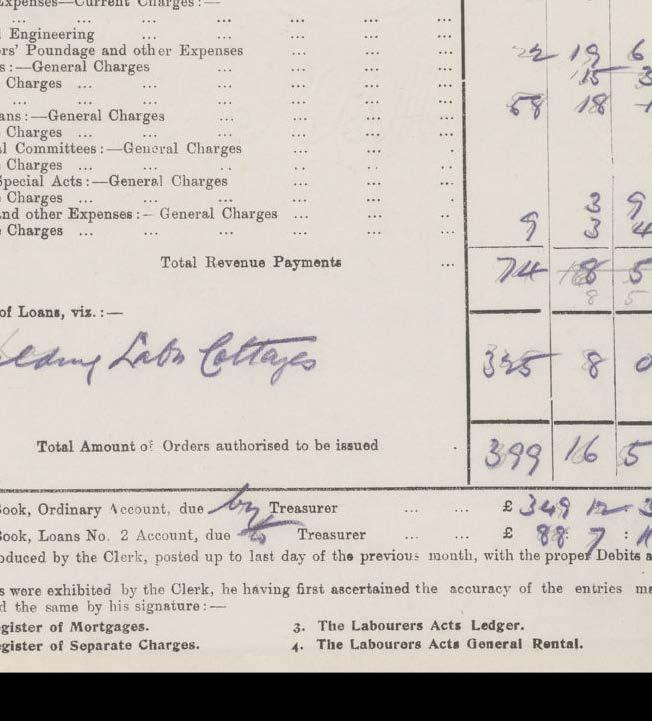 Expenses—Current Charges:—
... ... ... ... ... ...
l Engineering ... ... ... ... ...
ors' Poundage and other Expenses ... ... ... 22 19 6
s:—General Charges ... ... ... ... 15 3
Charges ... ... ... ... ... ...
... ... ... ... ... ... 58 18
ans:—General Charges ... ... ... ...
Charges ... ... ... ... ... ...
l Committees:—General Charges ... ... .
Charges ... ... .. .. ... ..
Special Acts:—General Charges ... ... ...
Charges ... ... ... ... ... . 3 9
and other Expenses:— General Charges ... ... ..
Charges ... ... ... ... ... ... 9 3 4
Total Revenue Payments ... 74 8 5
8 5
of Loans, viz.:—
ilding Labrs Cottages 325 8 0
Total Amount of Orders authorised to be issued . 399 16 5
Book, Ordinary Account, due by Treasurer ... ... £ 349 12 3
Book, Loans No. 2 Account, due to Treasurer ... ... £ 88 7 : 11
oduced by the Clerk, posted up to last day of the previous month, with the proper Debits a
s were exhibited by the Clerk, he having first ascertained the accuracy of the entries ma
d the same by his signature:—
gister of Mortgages. 3. The Labourers Acts Ledger.
gister of Separate Charges. 4. The Labourers Acts General Rental.